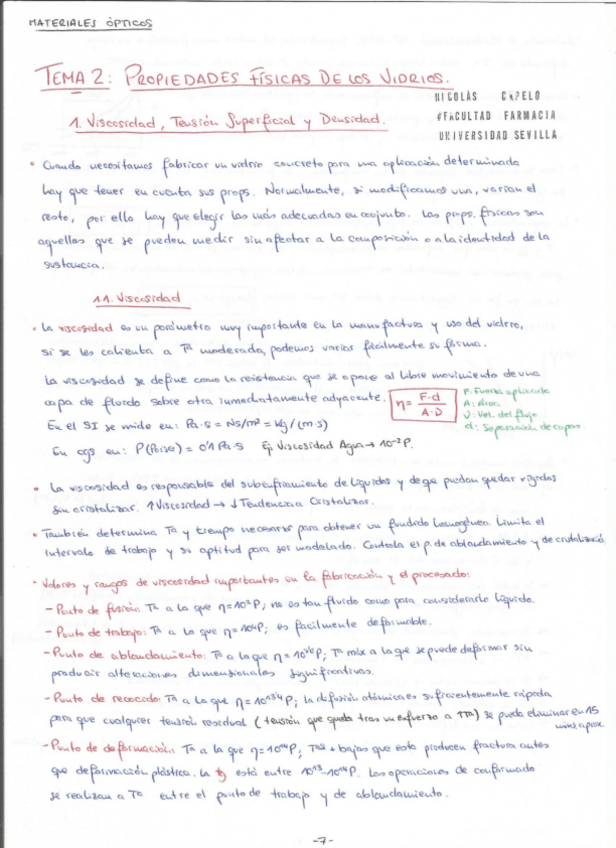 MATERIALES ÓPTICOS
TEMA 2: PROPIEDADES FÍSICAS DE LOS VIDRIOS.
NICOLÁS CAPELO
#FACULTAD FARMACIA
UNIVERSIDAD SEVILLA
1. Viscosidad, Tensión Superficial y Densidad.
• Cuando necesitamos fabricar un vidrio concreto para una aplicación determinada
hay que tener en cuenta sus props. Normalmente, si modificamos una, varían el
resto, por ello hay que elegir las más adecuadas en conjunto. Las props. físicas son
aquellas que se pueden medir sin afectar a la composición o a la identidad de la
sustancia.
1.1. Viscosidad
• La viscosidad es un parámetro muy importante en la manufactura y uso del vidrio,
si se les calienta a Tª moderada, podemos variar fácilmente su forma.
La viscosidad se define como la resistencia que se opone al libre movimiento de una
capa de fluido sobre otra inmediatamente adyacente. η = F·d / A·D
F: Fuerza aplicada
A: Área
υ: Vel. del flujo
d: Separación de capas.
En el SI se mide en: Pa·s = Ns/m² = Kg/(m·s)
En cgs en: P(Poise) = 0'1 Pa·s Ej: Viscosidad Agua → 10⁻² P.
• La viscosidad es responsable del subenfriamiento de líquidos y deja que puedan quedar rígidos
sin cristalizar. ↑Viscosidad → ↓ Tendencia a Cristalizar.
• También determina Tª y tiempo necesarios para obtener un fundido homogéneo. Limita el
intervalo de trabajo y su aptitud para ser modelado. Controla el p. de ablandamiento y de
• Valores y rangos de viscosidad importantes en la fabricación y el procesado:
- Punto de fusión: Tª a la que η = 10² P; no es tan fluido como para considerarlo líquido.
- Punto de trabajo: Tª a la que η = 10⁴ P; es fácilmente deformable.
- Punto de ablandamiento: Tª a la que η = P; Tª máx a la que se puede deformar sin
producir alteraciones dimensionales significativas.
- Punto de recocido: Tª a la que η = P; la difusión atómica es suficientemente rápida
para que cualquier tensión residual (tensión que queda tras un esfuerzo a ↑Tª) se pueda eliminar en 15
mins aprox.
- Punto de deformación: Tª a la que η = P; Tªs + bajas que esta producen fractura antes
que deformación plástica. La tg está entre 10¹³-10¹⁴ P. Las operaciones de conformado
se realizan a Tª entre el punto de trabajo y de ablandamiento.
-7-